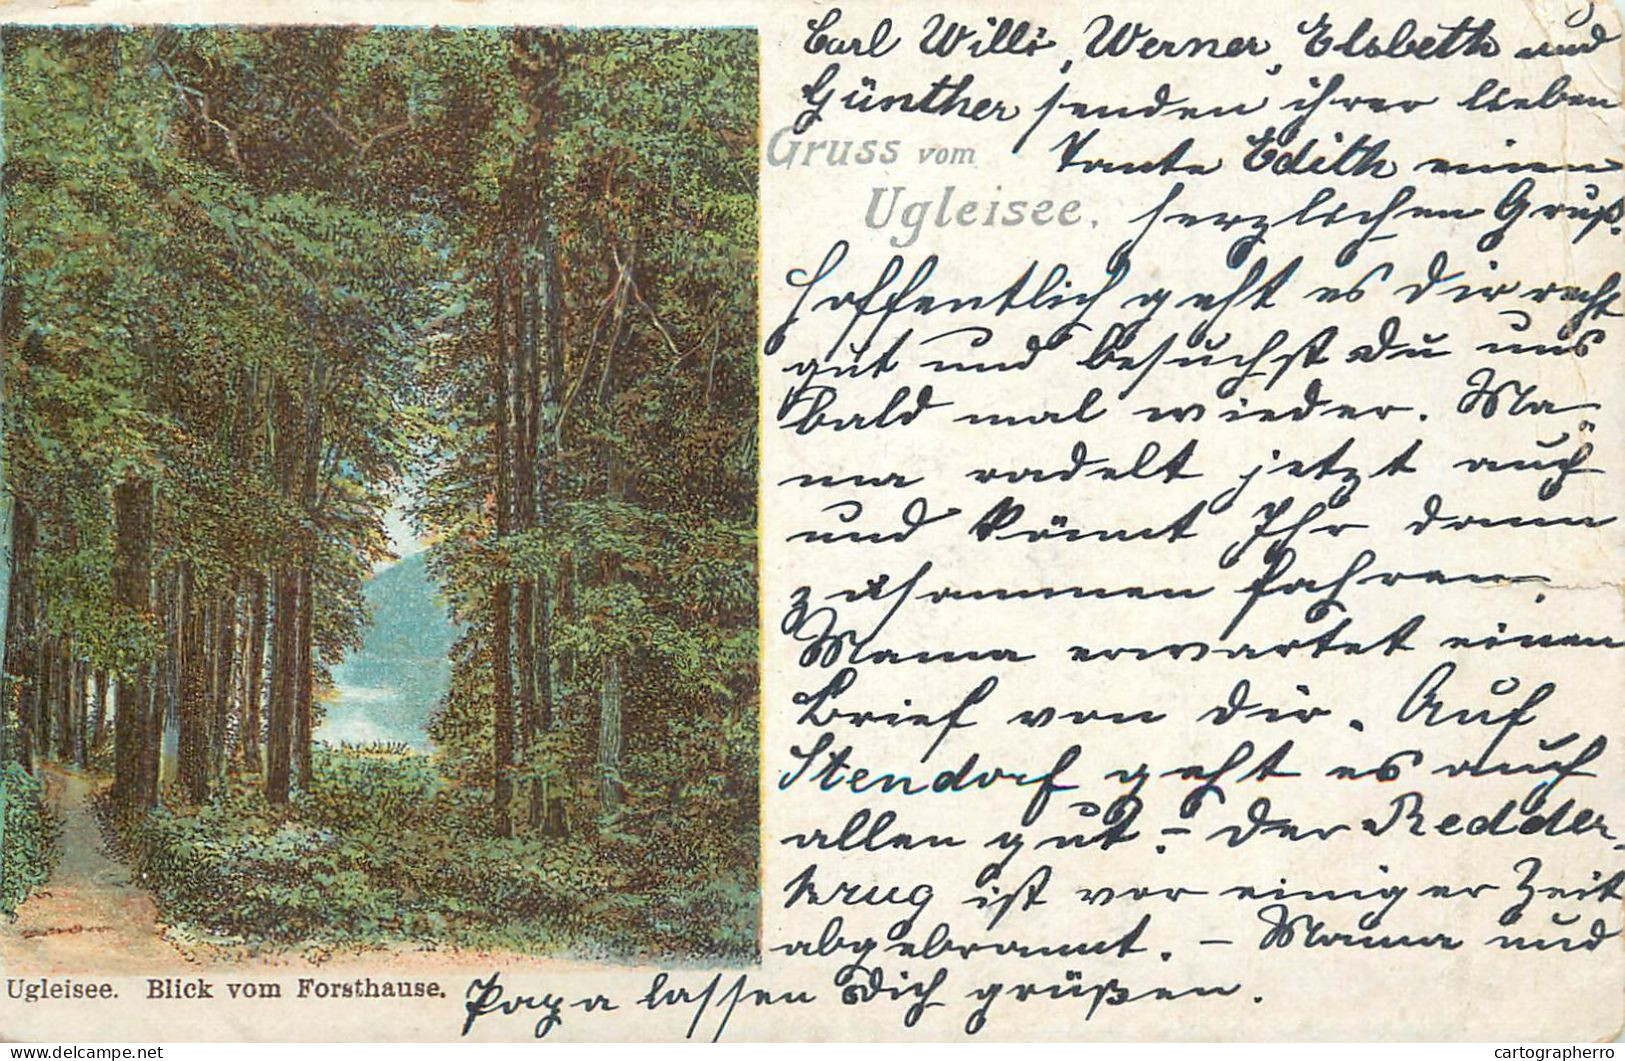 Carl Willi, Werner, Elsbeth und
Günther senden ihrer lieben
Gruss vom
Tante Edith einen
Ugleisee.
herzlichen Gruß.
Hoffentlich geht es dir recht
gut und besuchst Du uns
bald mal wieder. Ma-
ma radelt jetzt auch
und könnt Ihr dann
zusammen fahren.
Mama erwartet einen
Brief von dir. Auf
Stendorf geht es auch
allen gut. – Der Redder-
krug ist vor einiger Zeit
abgebrannt. – Mama und
Papa lassen Dich grüßen.
Ugleisee. Blick vom Forsthause.
delcampe.net
cartographerro